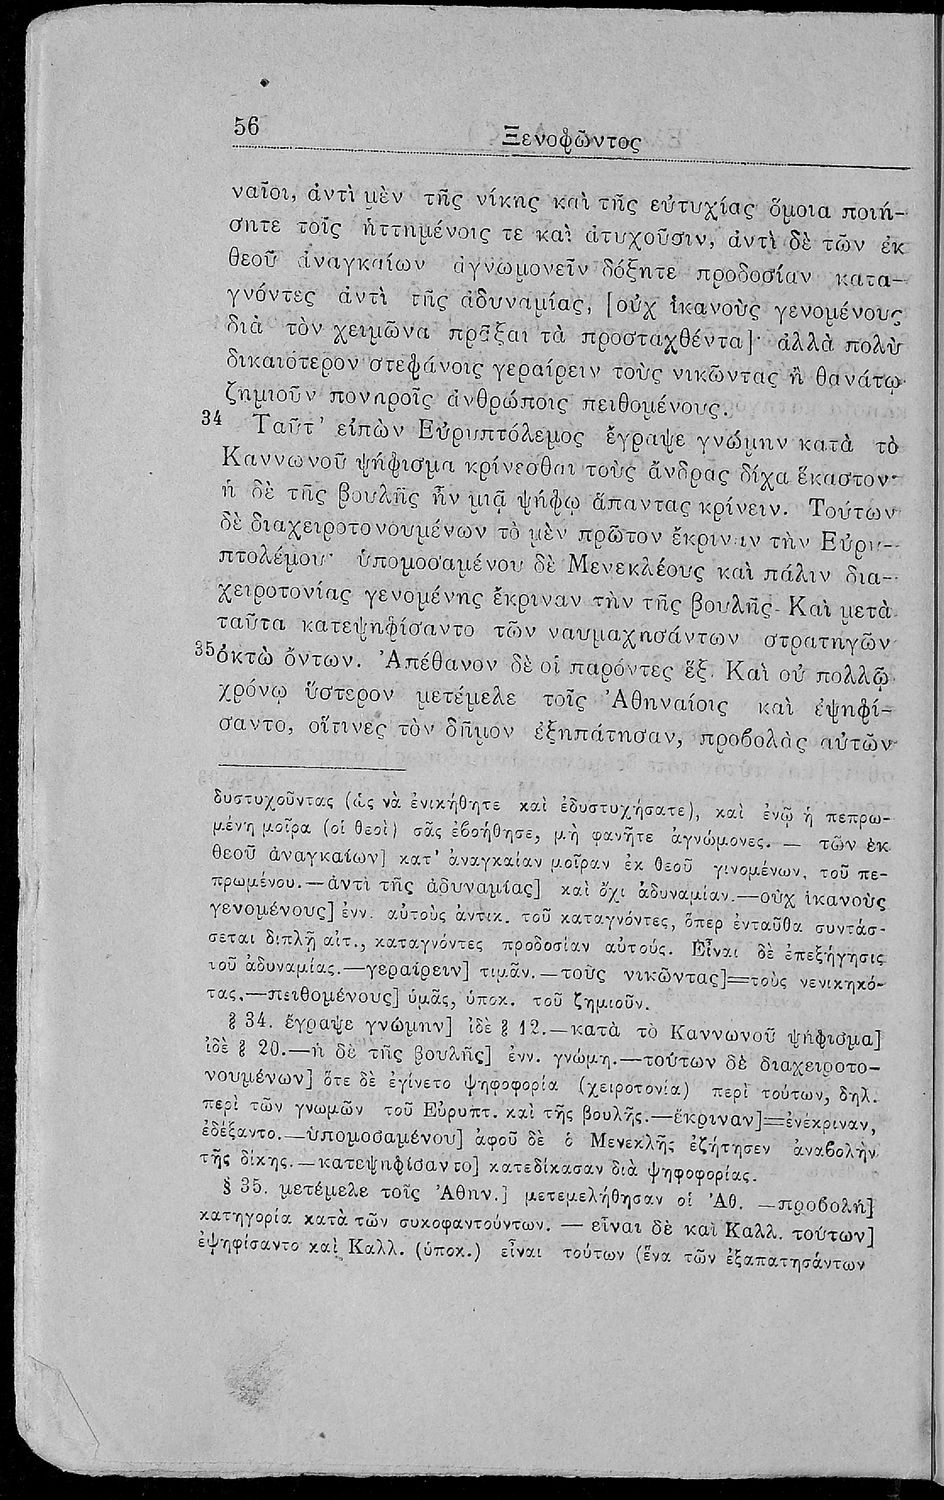 56
Ξενοφῶντος
ναῖοι, ἀντὶ μὲν τῆς νίκης καὶ τῆς εὐτυχίας ὅμοια ποιή-
σητε τοῖς ἡττημένοις τε καὶ ἀτυχοῦσιν, ἀντὶ δὲ τῶν ἐκ
θεοῦ ἀναγκαίων ἀγνωμονεῖν δόξητε προδοσίαν κατα-
γνόντες ἀντὶ τῆς ἀδυναμίας, [οὐχ ἱκανοὺς γενομένους
διὰ τὸν χειμῶνα πρᾶξαι τὰ προσταχθέντα]· ἀλλὰ πολὺ
δικαιότερον στεφάνοις γεραίρειν τοὺς νικῶντας ἢ θανάτῳ
ζημιοῦν πονηροῖς ἀνθρώποις πειθομένους.
34 Ταῦτ' εἰπὼν Εὐρυπτόλεμος ἔγραψε γνώμην κατὰ τὸ
Καννωνοῦ ψήφισμα κρίνεσθαι τοὺς ἄνδρας δίχα ἕκαστον·
ἡ δὲ τῆς βουλῆς ἦν μιᾷ ψήφῳ ἅπαντας κρίνειν. Τούτων
δὲ διαχειροτονουμένων τὸ μὲν πρῶτον ἔκριναν τὴν Εὐρυ-
πτολέμου· ὑπομοσαμένου δὲ Μενεκλέους καὶ πάλιν δια-
χειροτονίας γενομένης ἔκριναν τὴν τῆς βουλῆς. Καὶ μετὰ
ταῦτα κατεψηφίσαντο τῶν ναυμαχησάντων στρατηγῶν
35 ὀκτὼ ὄντων. Ἀπέθανον δὲ οἱ παρόντες ἕξ. Καὶ οὐ πολλῷ
χρόνῳ ὕστερον μετέμελε τοῖς Ἀθηναίοις καὶ ἐψηφί-
σαντο, οἵτινες τὸν δῆμον ἐξηπάτησαν, προβολὰς αὐτῶν
δυστυχοῦντας (ὡς νὰ ἐνικήθητε καὶ ἐδυστυχήσατε), καὶ ἐνῷ ἡ πεπρω-
μένη μοῖρα (οἱ θεοὶ) σᾶς ἐβοήθησε, μὴ φανῆτε ἀγνώμονες. — τῶν ἐκ
θεοῦ ἀναγκαίων] κατ' ἀναγκαίαν μοῖραν ἐκ θεοῦ γινομένων, τοῦ πε-
πρωμένου.—ἀντὶ τῆς ἀδυναμίας] καὶ ὄχι ἀδυναμίαν.—οὐχ ἱκανοὺς
γενομένους] ἐνν. αὐτοὺς ἀντικ. τοῦ καταγνόντες, ὅπερ ἐνταῦθα συντάσ-
σεται διπλῇ αἰτ., καταγνόντες προδοσίαν αὐτούς. Εἶναι δὲ ἐπεξήγησις
τοῦ ἀδυναμίας.—γεραίρειν] τιμᾶν.—τοὺς νικῶντας]=τοὺς νενικηκό-
τας.—πειθομένους] ὑμᾶς, ὑποκ. τοῦ ζημιοῦν.
§ 34. ἔγραψε γνώμην] ἰδὲ § 12.—κατὰ τὸ Καννωνοῦ ψήφισμα]
ἰδὲ § 20.—ἡ δὲ τῆς βουλῆς] ἐνν. γνώμη.—τούτων δὲ διαχειροτο-
νουμένων] ὅτε δὲ ἐγίνετο ψηφοφορία (χειροτονία) περὶ τούτων, δηλ.
περὶ τῶν γνωμῶν τοῦ Εὐρυπτ. καὶ τῆς βουλῆς.—ἔκριναν]=ἐνέκριναν,
ἐδέξαντο.—ὑπομοσαμένου] ἀφοῦ δὲ ὁ Μενεκλῆς ἐζήτησεν ἀναβολὴν
τῆς δίκης.—κατεψηφίσαντο] κατεδίκασαν διὰ ψηφοφορίας.
§ 35. μετέμελε τοῖς Ἀθην.] μετεμελήθησαν οἱ Ἀθ. —προβολή]
κατηγορία κατὰ τῶν συκοφαντούντων. — εἶναι δὲ καὶ Καλλ. τούτων]
ἐψηφίσαντο καὶ Καλλ. (ὑποκ.) εἶναι τούτων (ἕνα τῶν ἐξαπατησάντων